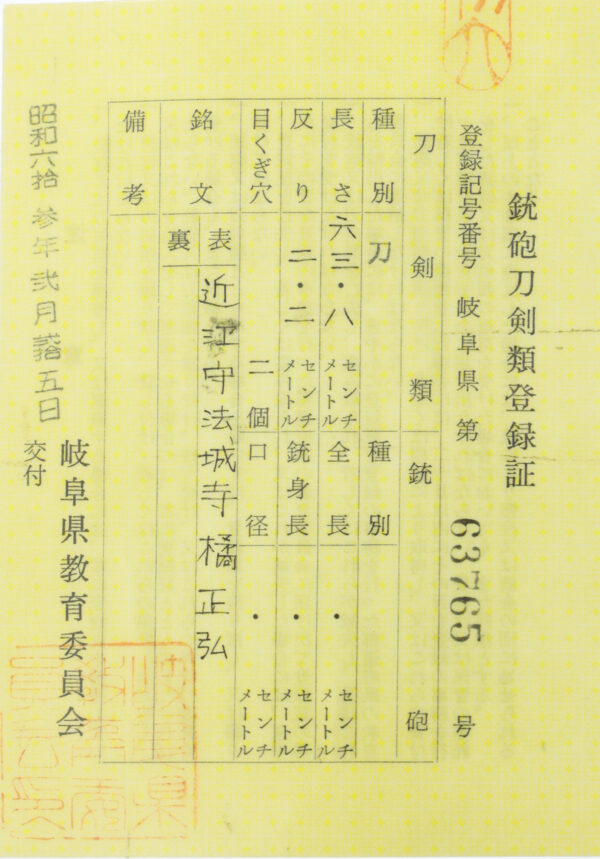 銃砲刀剣類登録証
登録記号番号 岐阜県 第 63765 号
刀剣類 銃砲
種別 刀 種別
長さ 六三・八 センチメートル 全長 ・ センチメートル
反り 二・二 センチメートル 銃身長 ・ センチメートル
目くぎ穴 二個 口径 ・ センチメートル
銘文 表 近江守法城寺橘正弘
裏
備考
昭和六拾参年弐月拾五日
交付
岐阜県教育委員会